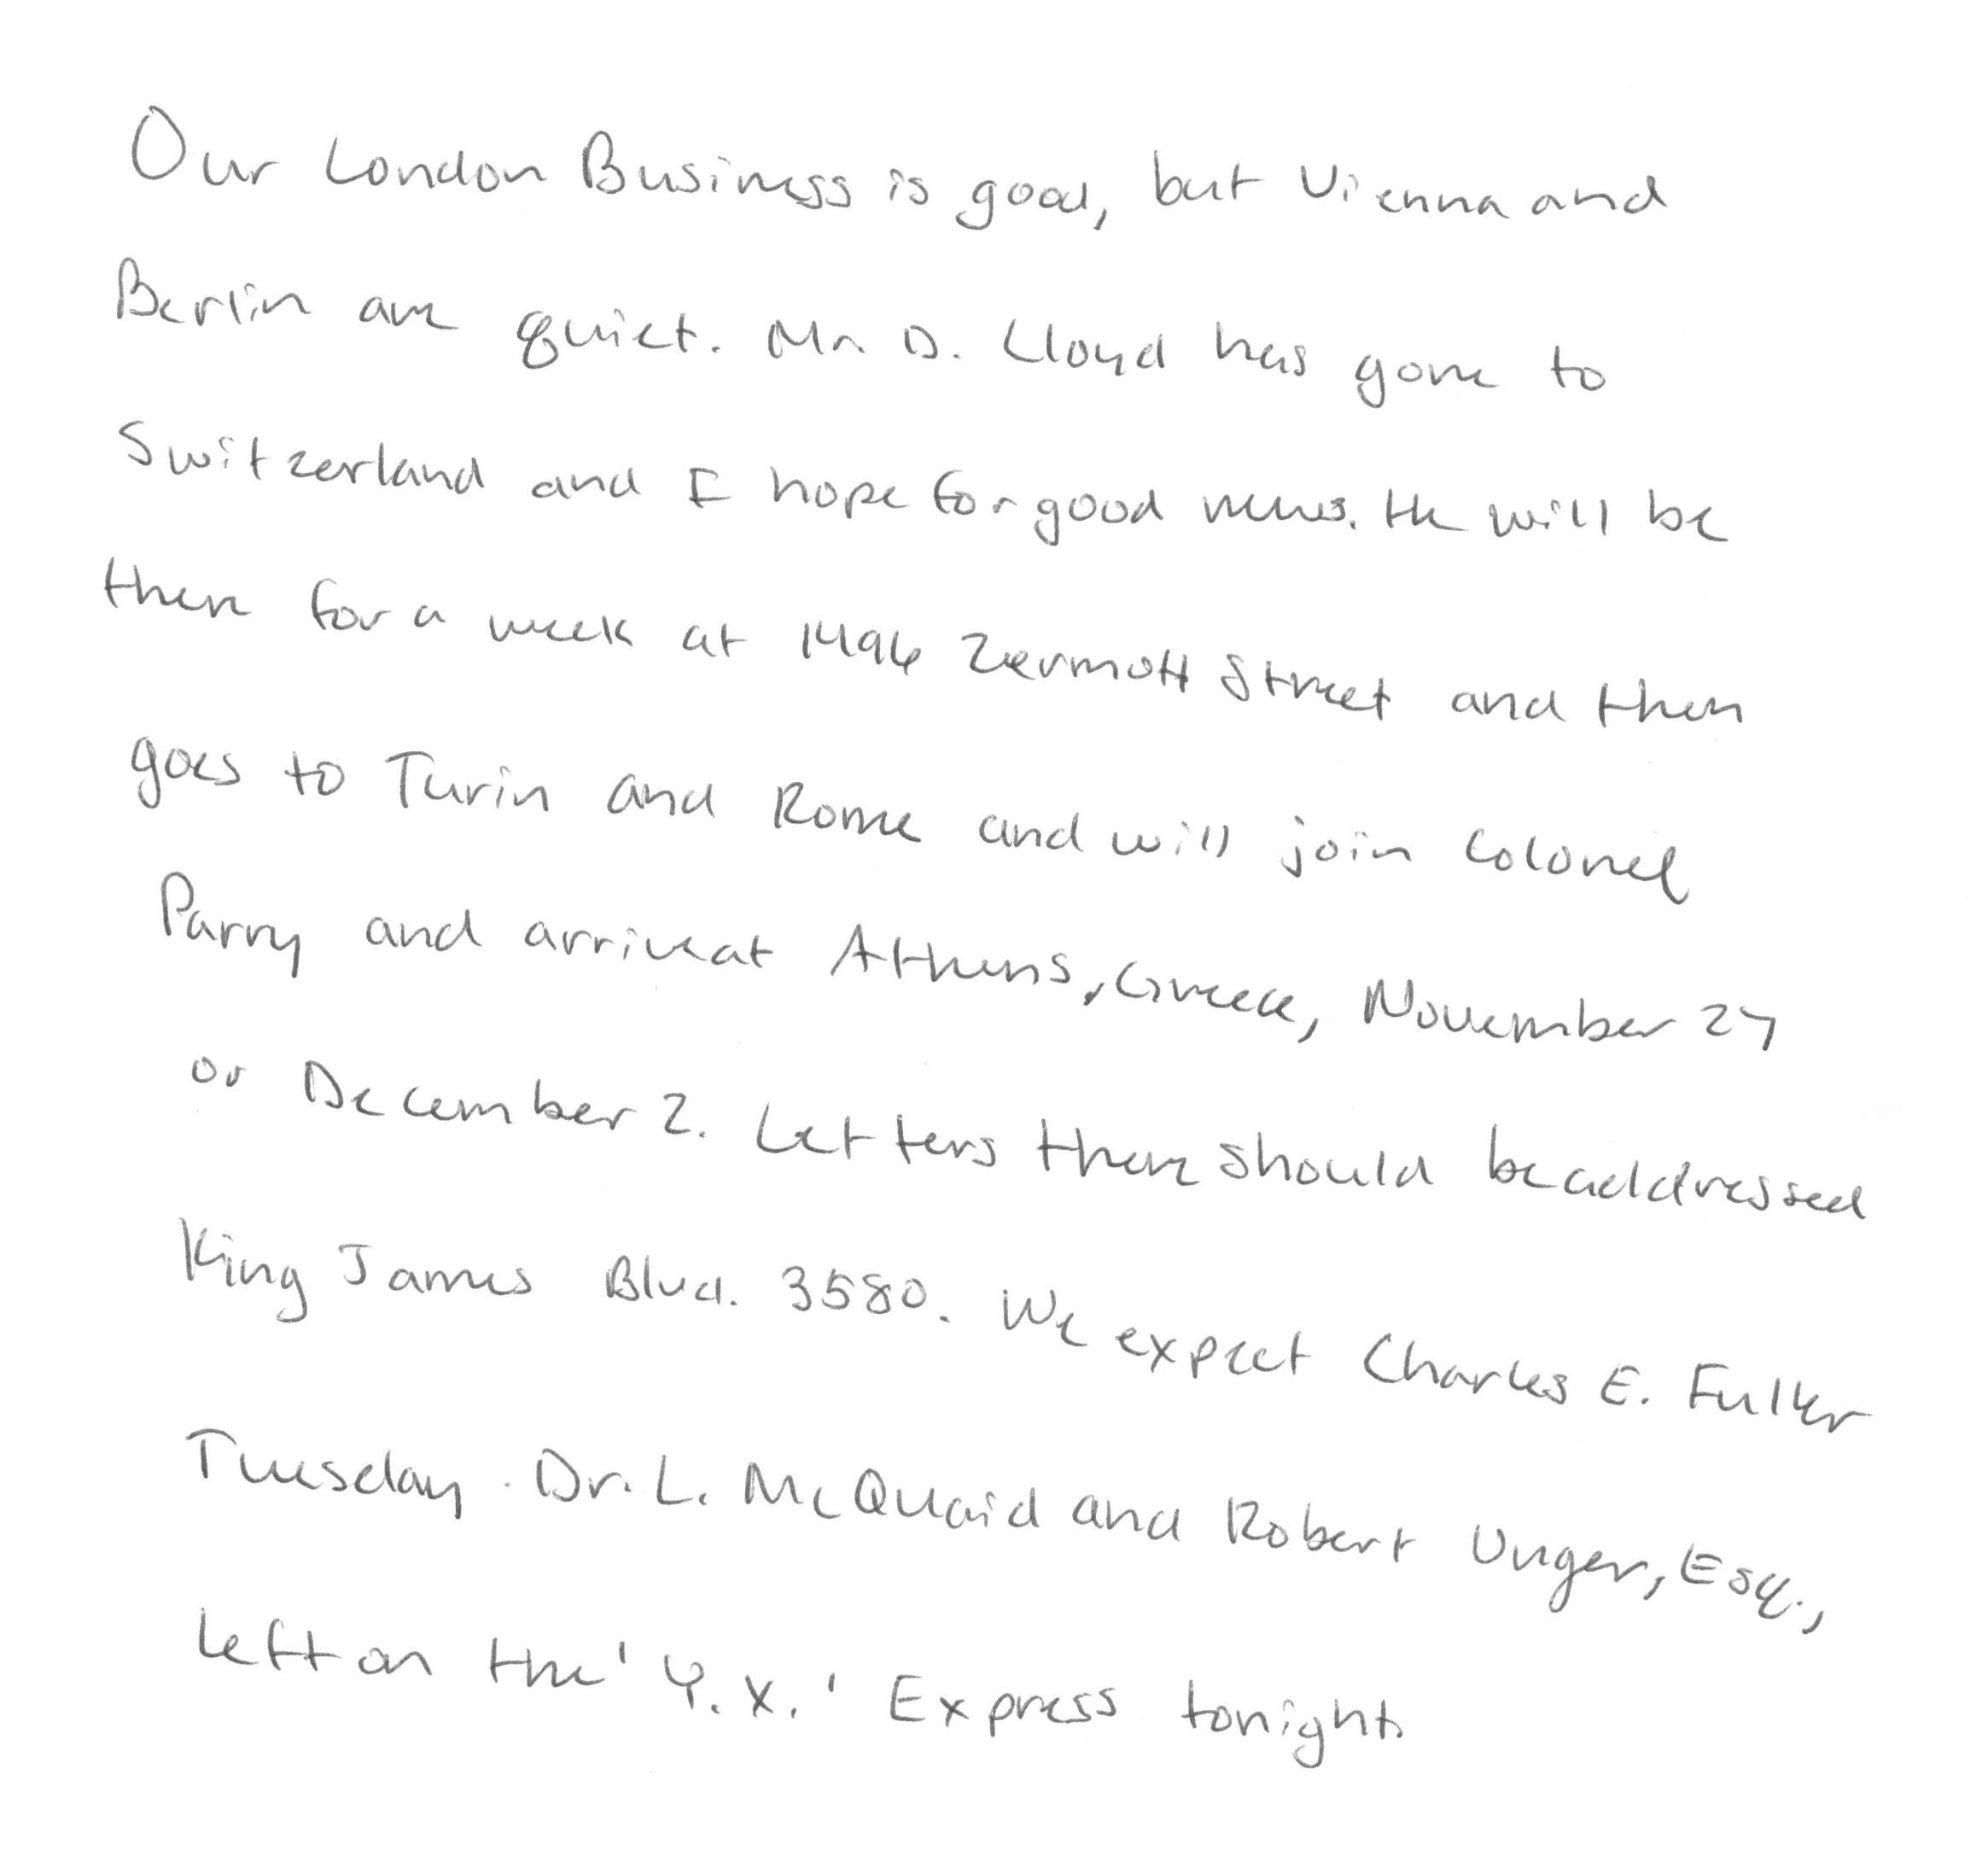 Our London Business is good, but Vienna and
Berlin are quiet. Mr. D. Lloyd has gone to
Switzerland and I hope for good news. He will be
there for a week at 1496 Zermott Street and then
goes to Turin and Rome and will join Colonel
Parry and arrive at Athens, Greece, November 27
or December 2. Letters there should be addressed
King James Blvd. 3580. We expect Charles E. Fuller
Tuesday. Dr. L. McQuaid and Robert Unger, Esq.,
left on the 'Y.X.' Express tonight.